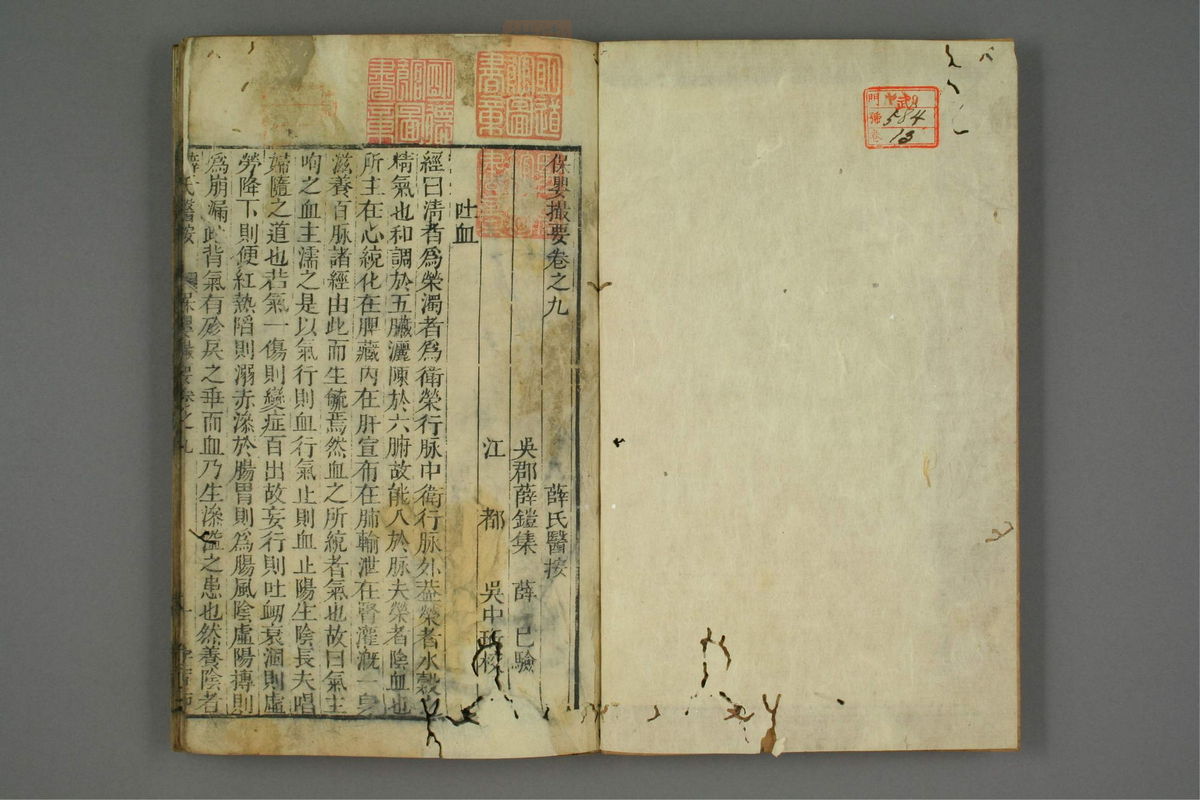 門 武
號 584
卷 13
保嬰撮要卷之九 薛氏醫按
吳郡薛鎧集 薛 己驗
江 都 吳中 校
吐血
經曰清者爲榮濁者爲衛榮行脉中衛行脉外蓋榮者水穀
精氣也和調於五臟灑陳於六腑故能入於脉夫榮者陰血也
所主在心統化在脾藏内在肝宣布在肺輸泄在腎灌溉一身
滋養百脉諸經由此而生毓焉然血之所統者氣也故曰氣主
呴之血主濡之是以氣行則血行氣止則血止陽生陰長夫唱
婦隨之道也若氣一傷則變症百出故妄行則吐衂衰涸則虛
勞降下則便紅熱陷則溺赤滲於腸胃則爲腸風陰虛陽摶則
爲崩漏此皆氣有 之乖而血乃生滲溢之患也然養陰者
薛氏醫按 保嬰撮要卷之九 一